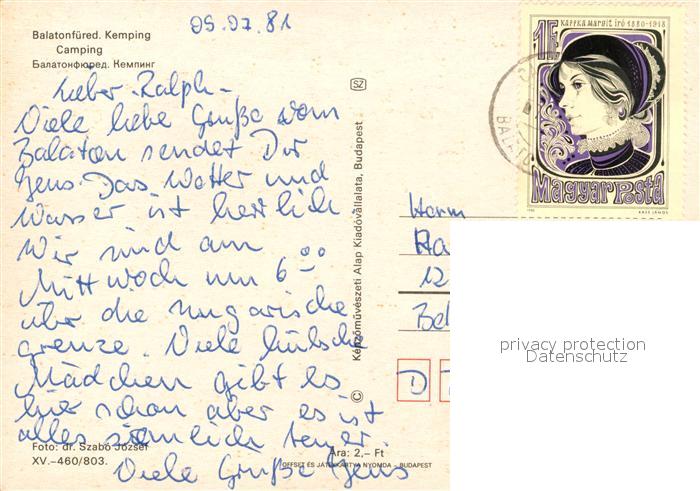 Balatonfüred. Kemping
Camping
Балатонфюред. Кемпинг
09.07.81
Lieber Ralph -
Viele liebe Grüße vom
Balaton sendet Dir
Jens. Das Wetter und
Wasser ist herrlich.
Wir sind am
Mittwoch um 6 00
über die ungarische
grenze. Viele hübsche
Mädchen gibt es
hier schon aber es ist
alles ziemlich teuer.
Viele Grüße Jens
Foto: dr. Szabó József
XV.–460/803.
Ára: 2,– Ft
OFFSET ÉS JÁTÉKKÁRTYA NYOMDA – BUDAPEST
SZ
© Képzőművészeti Alap Kiadóvállalata, Budapest
KAFFKA MARGIT író 1880-1918
1 Ft
Magyar Posta
1980
KASS JÁNOS
Herrn
Ra
12
D
privacy protection
Datenschutz